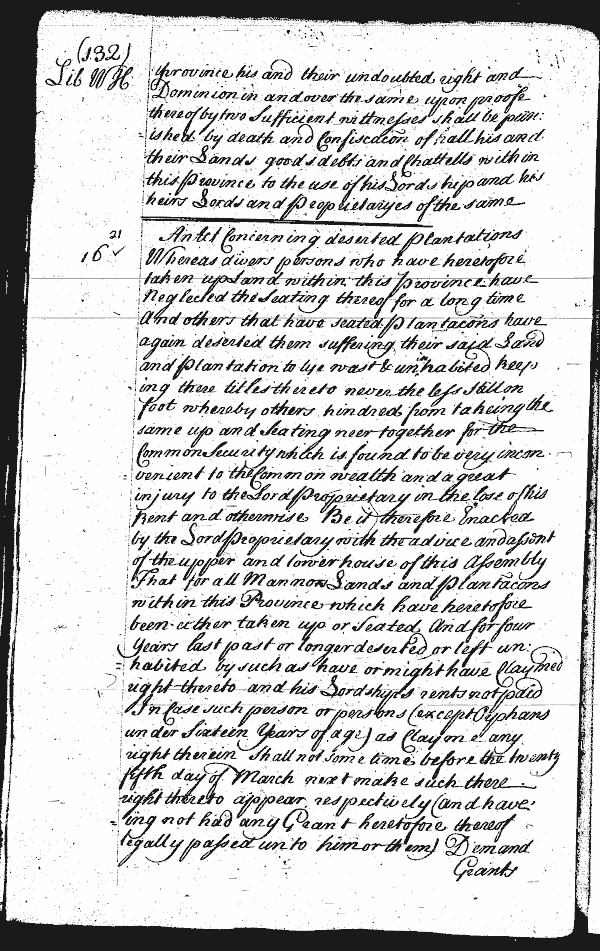 (132)
Lib WH
Province his and their undoubted right and
Dominion in and over the same upon proofe
thereof by two Sufficient wittnesses shall be pun:
ished by death and Confiscacõn of hall his and
their Lands goods debts and Chattells within
this Province to the use of his Lordshyp and his
heirs Lords and Proprietaryes of the same
21
16
An Act Concerning deserted Plantations
Whereas divers persons who have heretofore
taken up Land within this Province have
Neglected the Seating thereof for a long time
And others that have seated Plantacõns have
again deserted them suffering their said Land
and Plantation to lye wast & uninhabited keep
ing there titles thereto never the less still on
foot whereby others hindred from takeing the
same up and Seating neer together for the
Common Security which is found to be very incon
venient to the Common wealth and a great
injury to the Lord Proprietary in the lose of his
Rent and otherwise Be it therefore Enacted
by the Lord Proprietary with the advice and assent
of the upper and lower house of this Assembly
That for all Mannor Lands and Plantacons
within this Province which have heretofore
been either taken up or Seated And for four
Years last past or longer deserted or left un:
habited by such as have or might have Claymed
right thereto and his Lordshyps rents not paid
In Case such person or persons (except Orphans
under Sixteen Years of age) as Clayme any
right therein Shall not some time before the twenty
fifth day of March next make such there
right thereto appear respectively (and have:
ing not had any Grant heretofore thereof
legally passed unto him or them) Demand
Grants